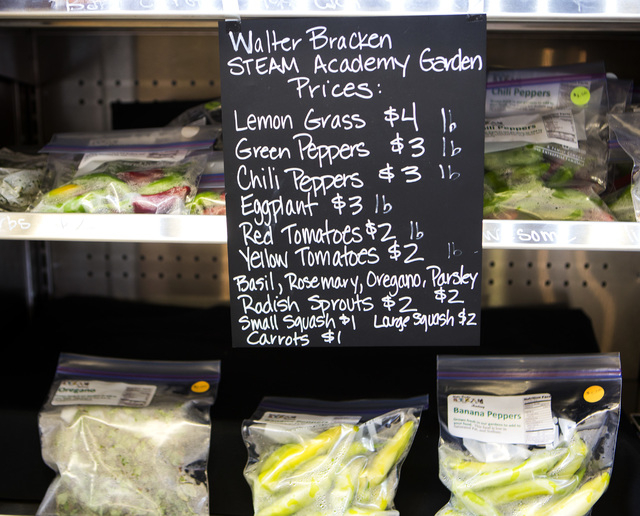 Walter Bracken
STEAM Academy Garden
Prices:
Lemon Grass $4 lb
Green Peppers $3 lb
Chili Peppers $3 lb
Eggplant $3 lb
Red Tomatoes $2 lb
Yellow Tomatoes $2 lb
Basil, Rosemary, Oregano, Parsley
$2
Radish Sprouts $2
Small Squash $1 Large Squash $2
Carrots $1
Chili Peppers
Chili Peppers
some
Oregano
Banana Peppers